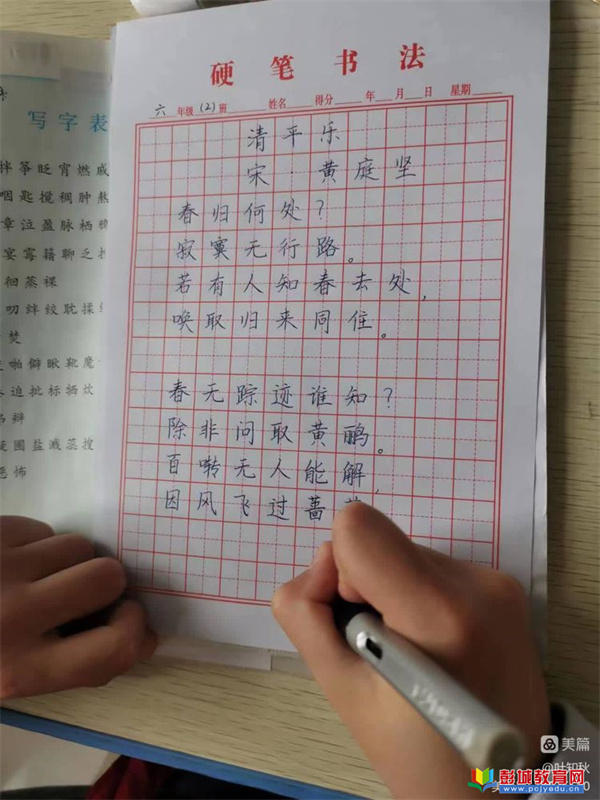 硬笔书法
六 年级 (2) 班 姓名 得分 年 月 日 星期
清平乐
宋·黄庭坚
春归何处?
寂寞无行路。
若有人知春去处,
唤取归来同住。
春无踪迹谁知?
除非问取黄鹂。
百啭无人能解,
因风飞过蔷
写字表
拌筝眨宵燃
咽匙搅稠肿熬
章泣盈脉栖
宴霉籍聊乏
徊蒸裸
叨绊绞耽揉
焚
啪僻瞅靴魔
迫批标牺炊
辩
圈盐溅蕊搜
恐怖
美篇
@叶知秋
彭城教育网
www.pcjyedu.cn